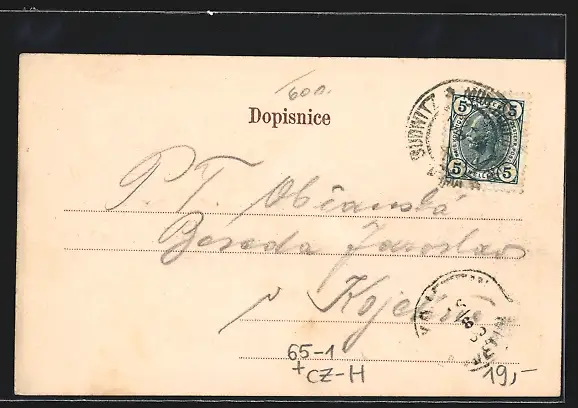 600.
Dopisnice
5 5
5 5
P. T. Občanská
Beseda Jaroslav
v Kojetíně
65-1
+ CZ-H
19,-